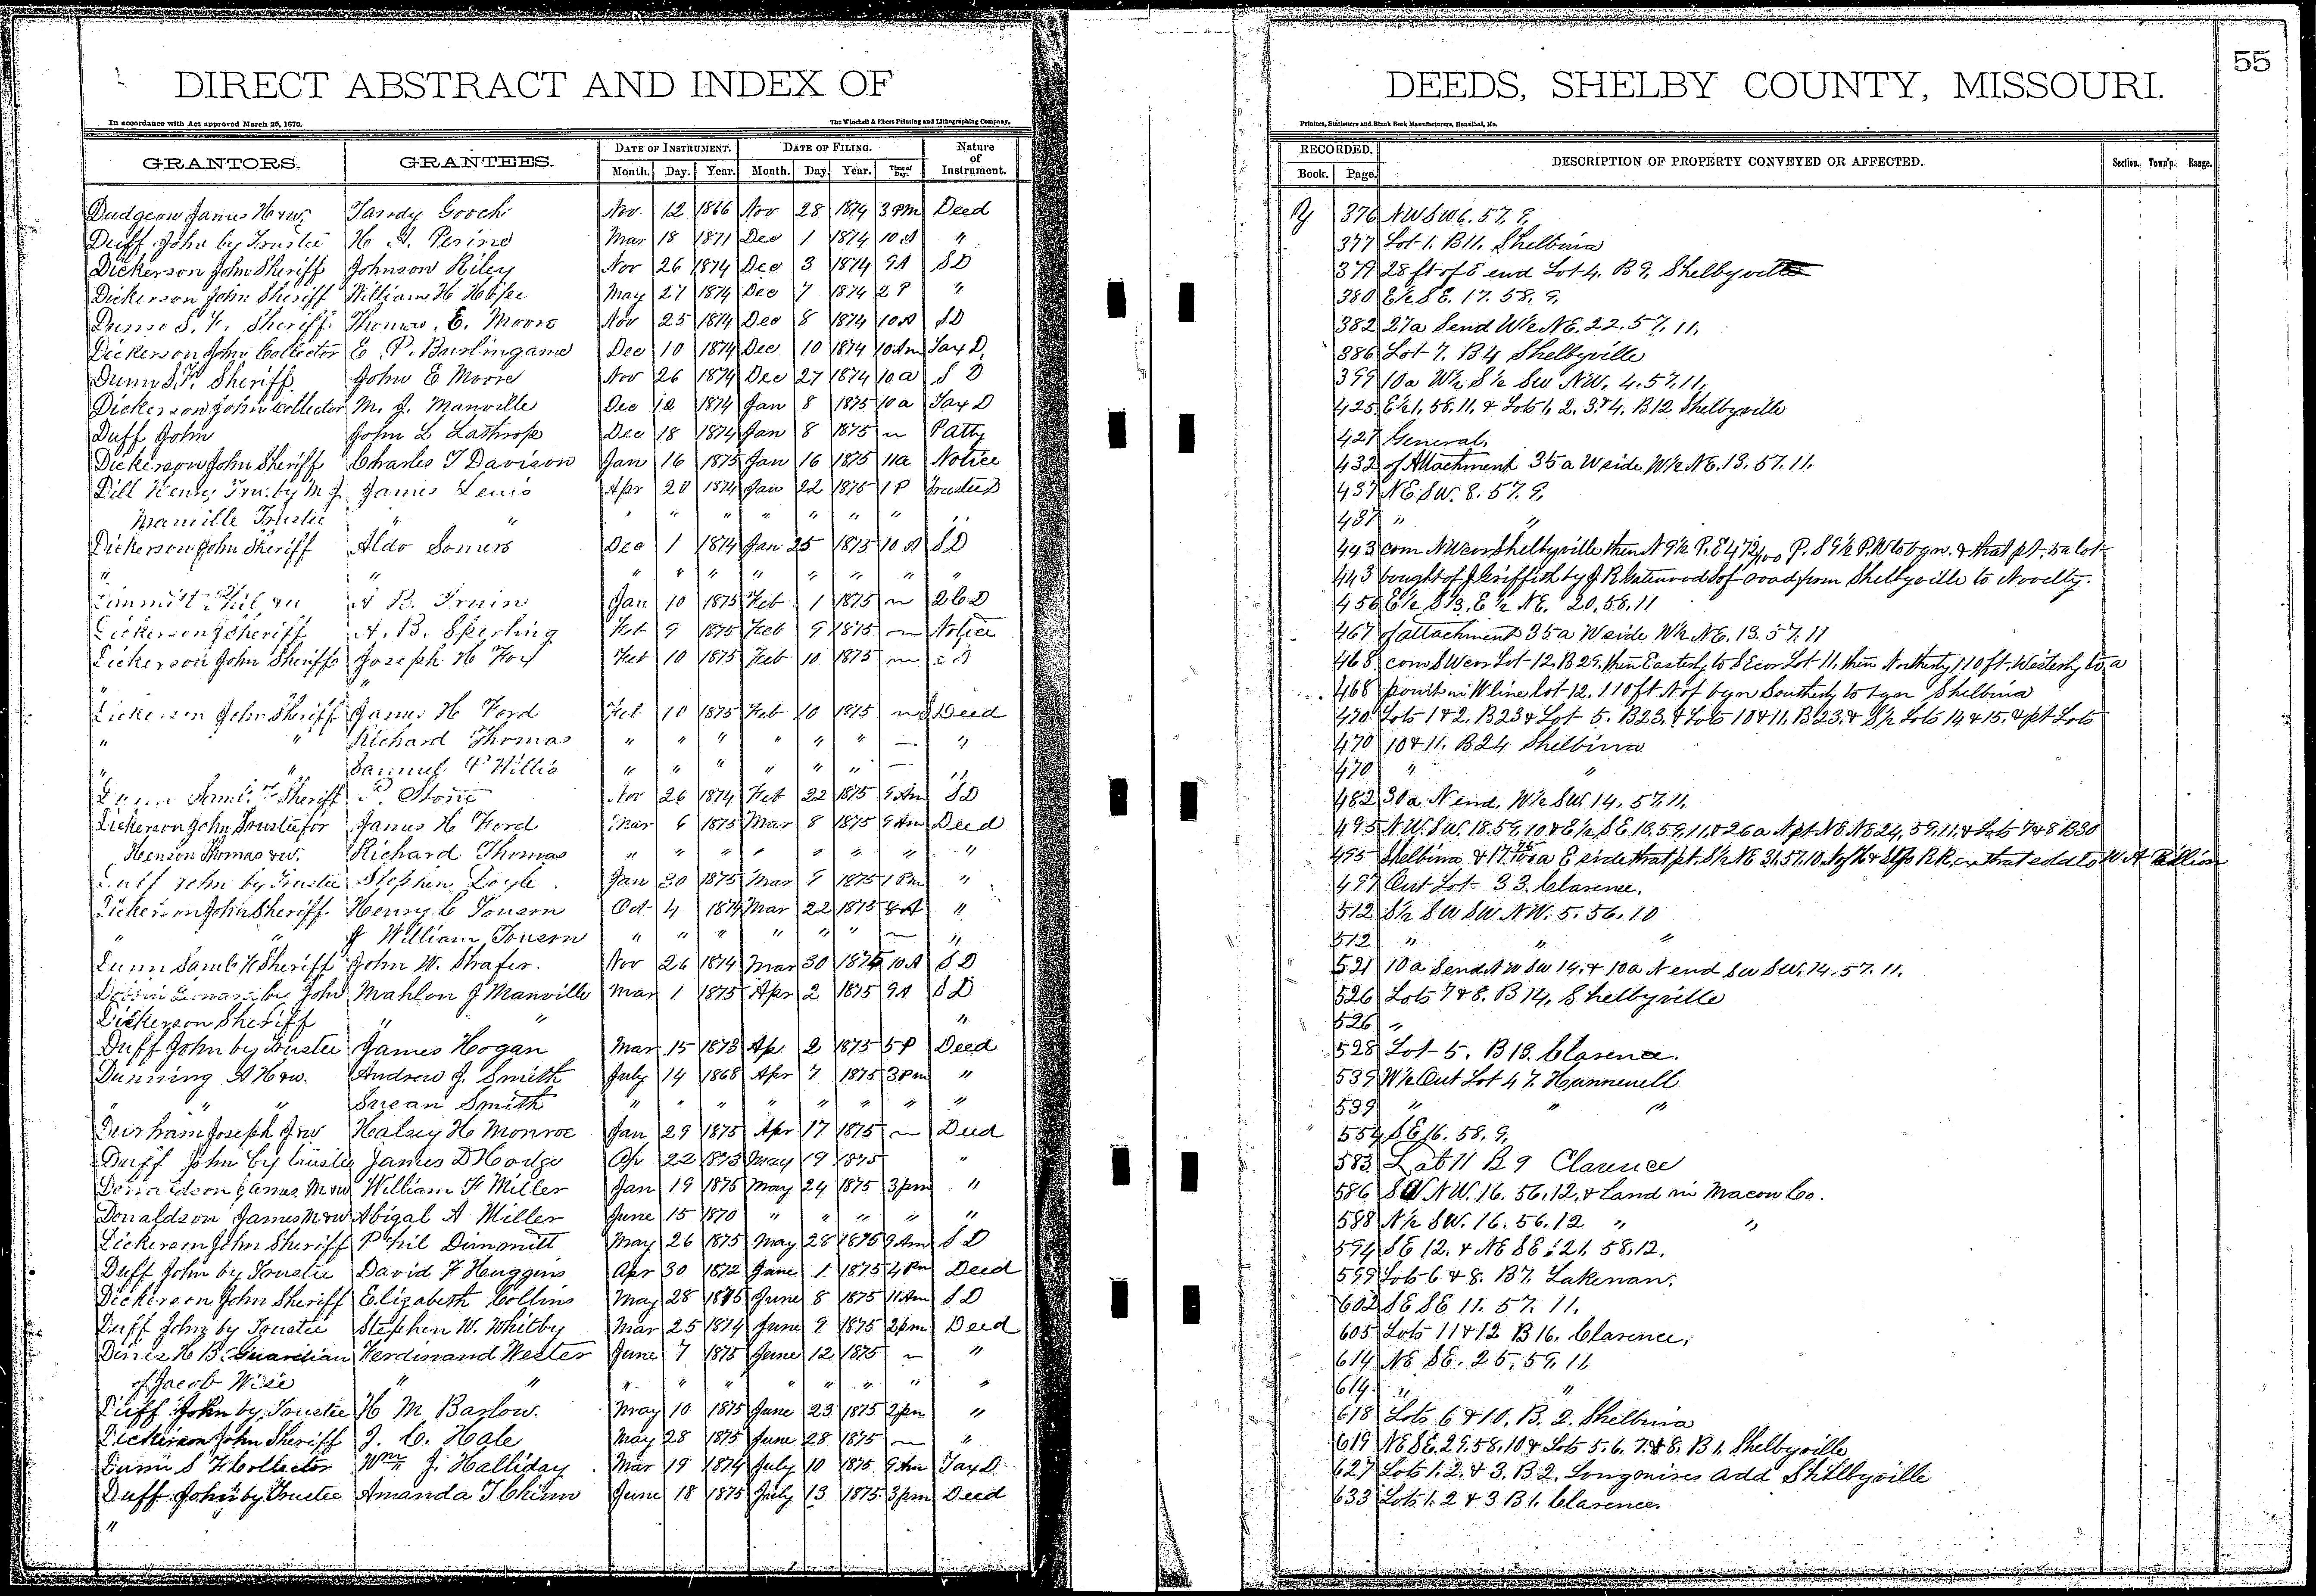 55
DIRECT ABSTRACT AND INDEX OF DEEDS, SHELBY COUNTY, MISSOURI.
In accordance with Act approved March 25, 1870. The Winchell & Ebert Printing and Lithographing Company, Printers, Stationers and Blank Book Manufacturers, Hannibal, Mo.
GRANTORS. GRANTEES. DATE OF INSTRUMENT. DATE OF FILING. Nature of Instrument. RECORDED. DESCRIPTION OF PROPERTY CONVEYED OR AFFECTED. Section. Town'p. Range.
Month. Day. Year. Month. Day. Year. Time of Day. Book. Page.
Dudgeon James H & w. Tandy Gooch Nov. 12 1866 Nov 28 1874 3 PM Deed 376 NW SW 6. 57. 9.
Duff John by Trustee H A. Perine Mar 18 1871 Dec 1 1874 10 A " 377 Lot 1. B 11. Shelbina
Dickerson John Sheriff Johnson Riley Nov 26 1874 Dec 3 1874 9 A S D 379 28 ft of E end Lot 4. B 9. Shelbyville
Dickerson John Sheriff William H Hope May 27 1874 Dec 7 1874 2 P " 380 E½ S E. 17. 58. 9.
Dunn S. F. Sheriff. Thomas. E. Moore Nov 25 1874 Dec 8 1874 10 A S D 382 27a S end W½ NE. 22. 57. 11.
Dickerson John Collector E. P. Burlingame Dec 10 1874 Dec 10 1874 10 Am Tax D. 386 Lot 7. B 4 Shelbyville
Dunn S. F. Sheriff. John E Moore Nov 26 1874 Dec 27 1874 10 a S D 399 10a W½ S½ SW NW. 4. 57. 11.
Dickerson John Collector M. J. Manville Dec 12 1874 Jan 8 1875 10 a Tax D 425 E½ 1. 58. 11. & Lots 1. 2. 3. & 4. B 12 Shelbyville
Duff John John L Lathrop Dec 18 1874 Jan 8 1875 P atty 427 General.
Dickerson John Sheriff Charles T Davison Jan 16 1875 Jan 16 1875 11a Notice 432 of Attachment 35 a W side W½ NE. 13. 57. 11.
Dill Henry Trus. by M J. James Lewis Apr 20 1874 Jan 22 1875 1 P Trustee D 437 NE SW. 8. 57. 9.
Manville Trustee " " " " " " " " " 437 " "
Dickerson John Sheriff Aldo Somers Dec 1 1874 Jan 25 1875 10 A S D 443 com NW cor Shelbyville then N 9½ P. E 47 P. S 9½ P. W to bgn. & that pt. 5a lot
" " " " " " " " " " 443 bought of J Griffith by J R S of road from Shelbyville to Novelty.
Dimmitt Phil A B. Irwin Jan 10 1875 Feb 1 1875 2 C D 456 E½ S ⅓. E½ NE. 20. 58. 11
Dickerson J Sheriff A. B. Sperling Feb 9 1875 Feb 9 1875 Notice 467 of attachment 35a W side W½ NE. 13. 57. 11
Dickerson John Sheriff Joseph H Fox Feb 10 1875 Feb 10 1875 S D 468 com SW cor Lot 12. B 29. then Easterly to SE cor Lot 11. then Northerly 110 ft. Westerly to a
" " 468 point in W line Lot 12. 110 ft N of bgn Southerly to bgn Shelbina
Dickerson John Sheriff James H Ford Feb 10 1875 Feb 10 1875 Deed 470 Lots 1 & 2. B 23 & Lot 5. B 23. & Lots 10 & 11. B 23. & S½ Lots 14 & 15. & pt Lots
" " Richard Thomas " " " " " " " 470 10 & 11. B 24 Shelbina
" " Samuel P Willis " " " " " " " 470 " "
Dunn Saml. F Sheriff P. Stone Nov 26 1874 Feb 22 1875 9 Am S D 482 30a N end. W½ SW. 14. 57. 11.
Dickerson John Trustee for James H Ford Mar 6 1875 Mar 8 1875 9 Am Deed 495 NW. SW. 18. 59. 10 & E½ SE 13. 59. 11. & 26a N pt NE NE 24. 59. 11. & Lots 7 & 8 B 30
Henson Thomas & w. Richard Thomas " " " " " " " " 495 Shelbina & 17 a E side that pt. S½ NE 31. 57. 10. N of H & St Jo R R. ex that sold to W A
Duff John by Trustee Stephen Doyle. Jan 30 1875 Mar 9 1875 1 Pm " 497 Out Lot 33. Clarence.
Dickerson John Sheriff. Henry C Towson Oct 4 1874 Mar 22 1875 8 A " 512 S½ SW SW NW. 5. 56. 10
" " J William Towson " " " " " " " 512 " " "
Dunn Saml F Sheriff John W. Shafer. Nov 26 1874 Mar 30 1875 10 A S D 521 10a S end NW SW 14. & 10a N end SW SW. 14. 57. 11.
by John Mahlon J Manville Mar 1 1875 Apr 2 1875 9 A S D 526 Lots 7 & 8. B 14. Shelbyville
Dickerson Sheriff " " " 526 "
Duff John by Trustee James Hogan Mar 15 1873 Ap 2 1875 5 P Deed 528 Lot 5. B 13. Clarence.
Dunning A H & w. Andrew J. Smith July 14 1868 Apr 7 1875 3 pm " 539 W½ Out Lot 47. Hunnewell
" " " Susan Smith " " " " " " " " 539 " " "
Durham Joseph J & w Halsey H Monroe Jan 29 1875 Apr 17 1875 Deed 554 SE 16. 58. 9.
Duff John by trustee James D Hodge Ap 22 1873 May 19 1875 " 583 Lot 11 B 9 Clarence
Donaldson James M & w William F Miller Jan 19 1875 May 24 1875 3 pm " 586 SW NW. 16. 56. 12. & Land in Macon Co.
Donaldson James M & w Abigal A Miller June 15 1870 " " " " " 588 N½ SW. 16. 56. 12 " "
Dickerson John Sheriff Phil Dimmitt May 26 1875 May 28 1875 9 Am S D 594 SE 12. & NE SE. 21. 58. 12.
Duff John by Trustee David F Huggins Apr 30 1872 June 1 1875 4 Pm Deed 599 Lots 6 & 8. B 7. Lakenan.
Dickerson John Sheriff Elizabeth Collins May 28 1875 June 8 1875 11 Am S D 602 SE SE 11. 57. 11.
Duff John by Trustee Stephen W. Whitby Mar 25 1874 June 9 1875 2 pm Deed 605 Lots 11 & 12 B 16. Clarence.
Dines H B. Guardian Ferdinand Wester June 7 1875 June 12 1875 " 614 NE SE. 25. 59. 11.
of Jacob Wise " " " " " " " " " " 614. " "
Duff John by Trustee H M Barlow. May 10 1875 June 23 1875 2 pm " 618 Lots 6 & 10. B. 2. Shelbina
Dickerson John Sheriff J. C. Hale May 28 1875 June 28 1875 " 619 NE SE. 29. 58. 10 & Lots 5. 6. 7. & 8. B 1. Shelbyville
Dunn S F Collector Wm J. Halliday Mar 19 1874 July 10 1875 9 Am Tax D. 627 Lots 1. 2. & 3. B 2. Longmires add Shelbyville
Duff John by Trustee Amanda T Chinn June 18 1875 July 13 1875 3 pm Deed 633 Lots 1. 2 & 3 B 1. Clarence.
"